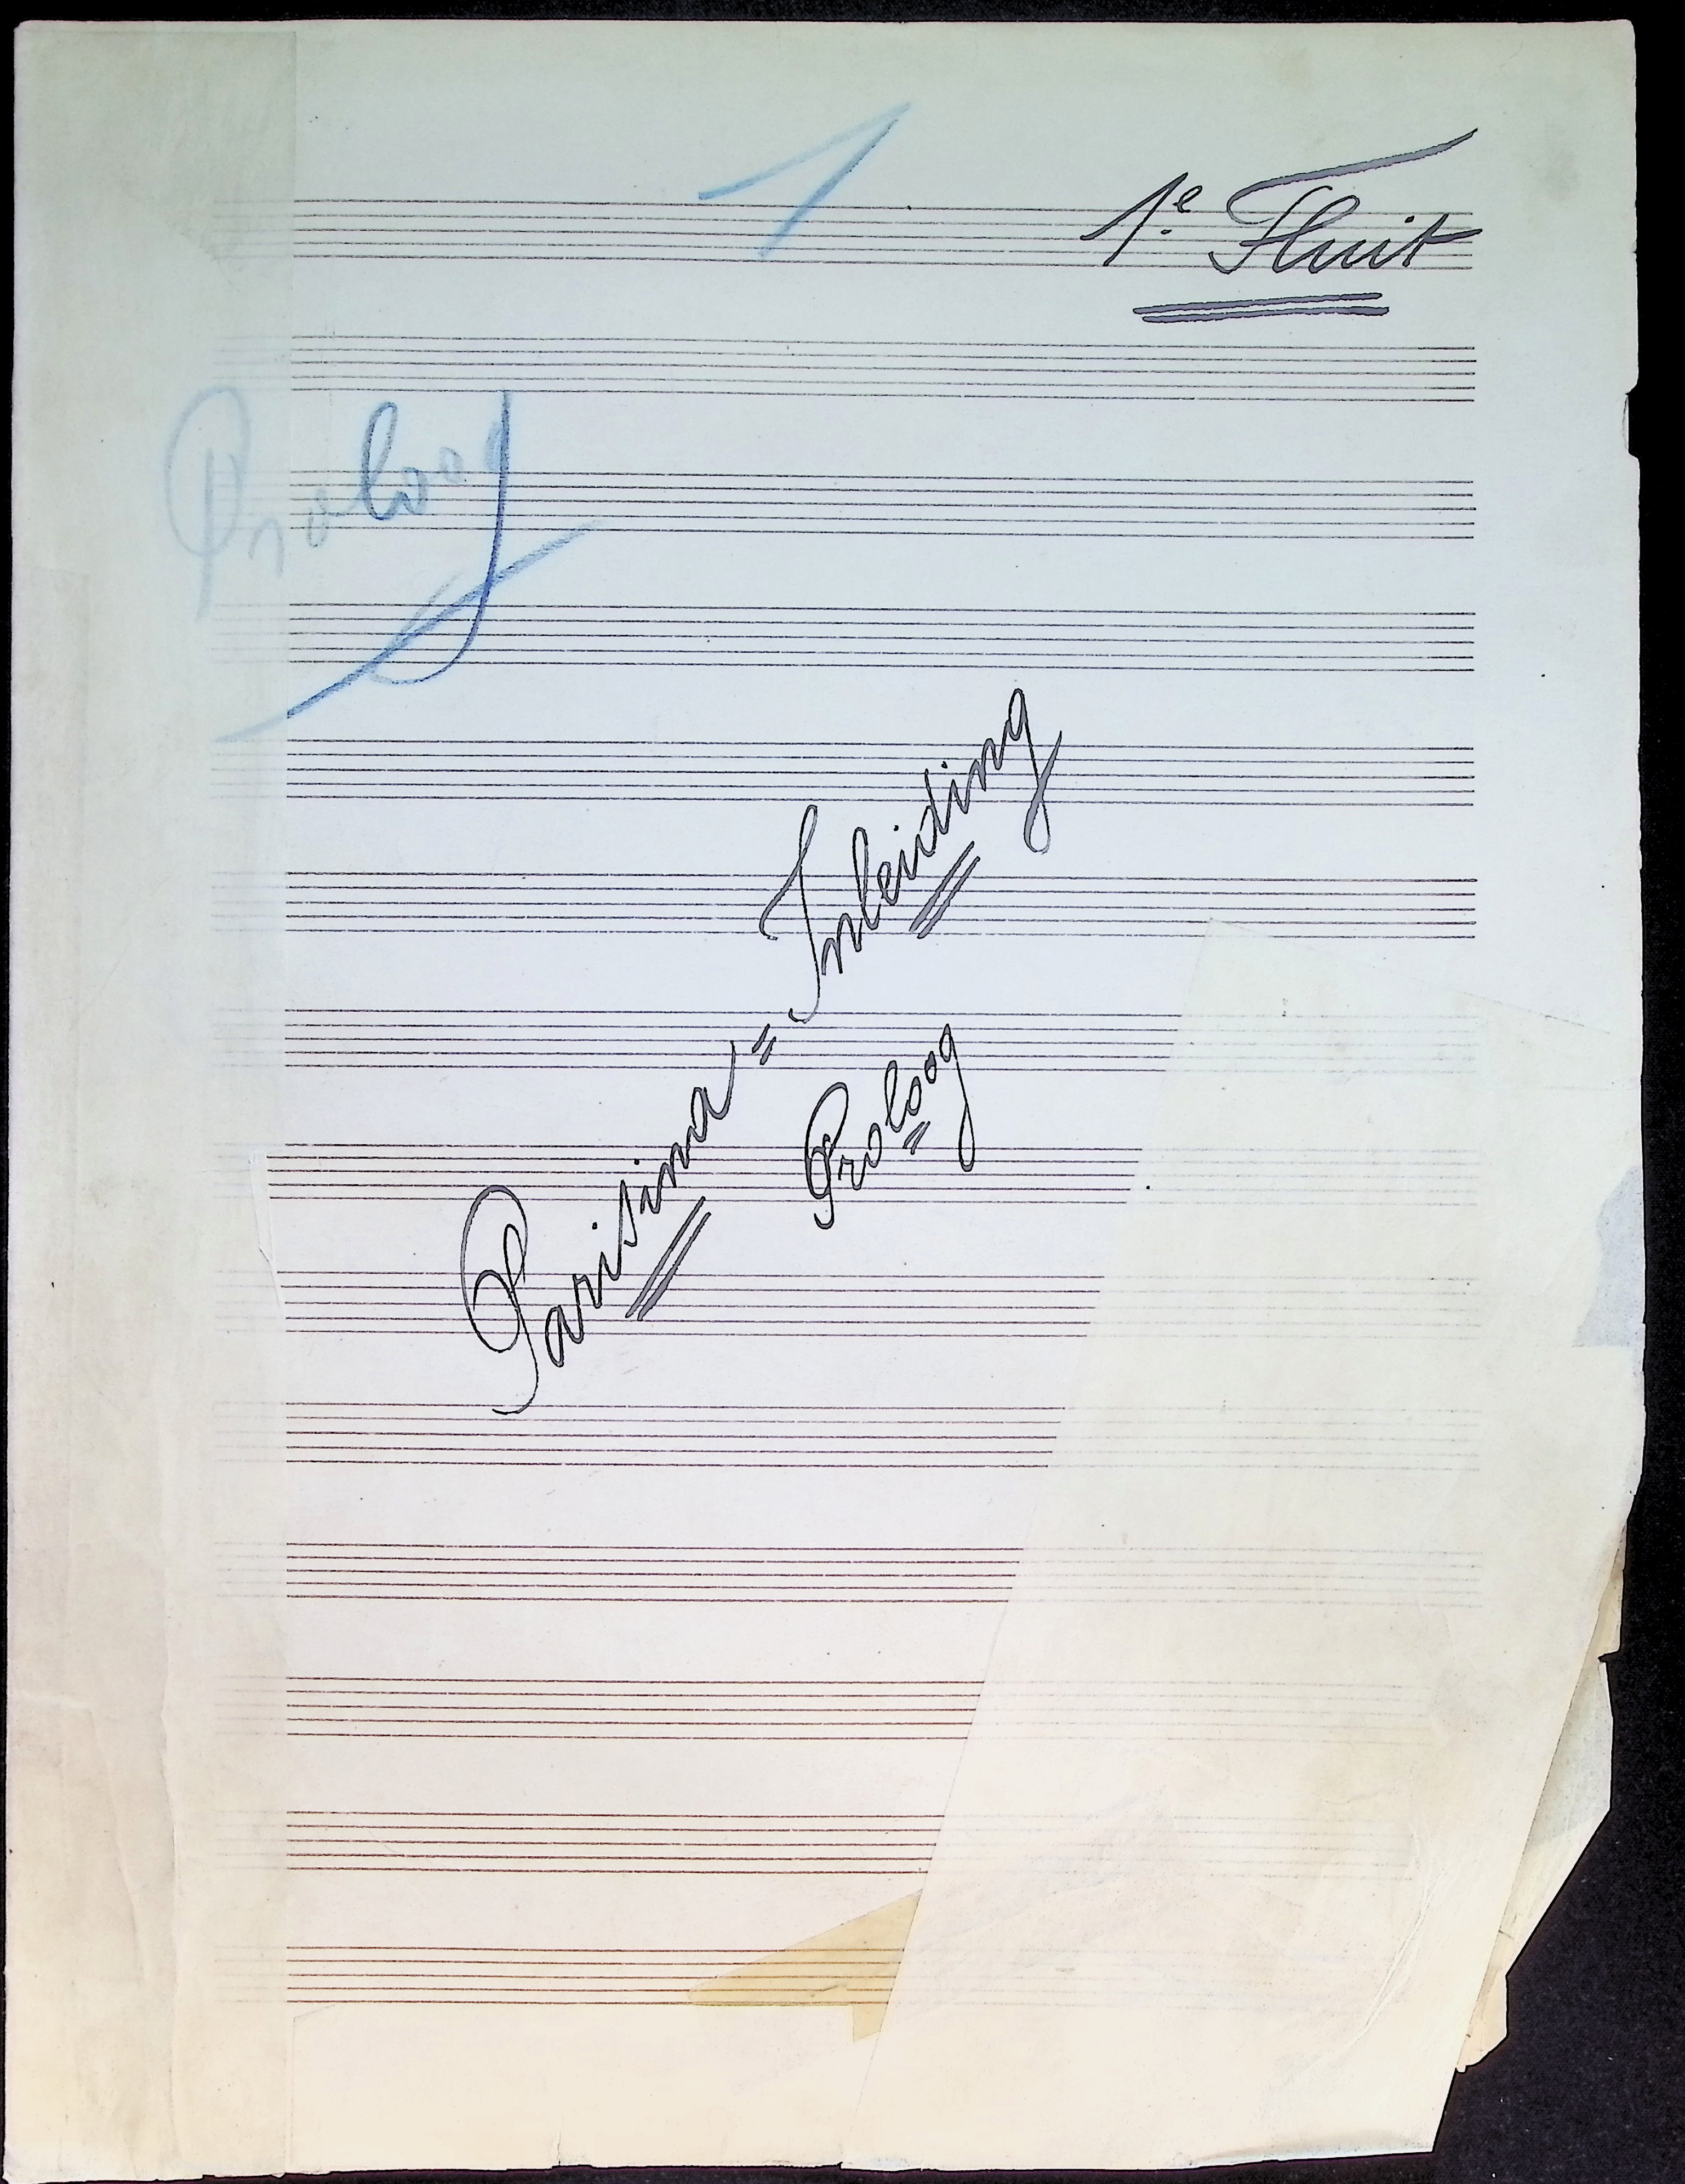 1
1.e Fluit
Proloog
Parisina = Inleiding
Proloog